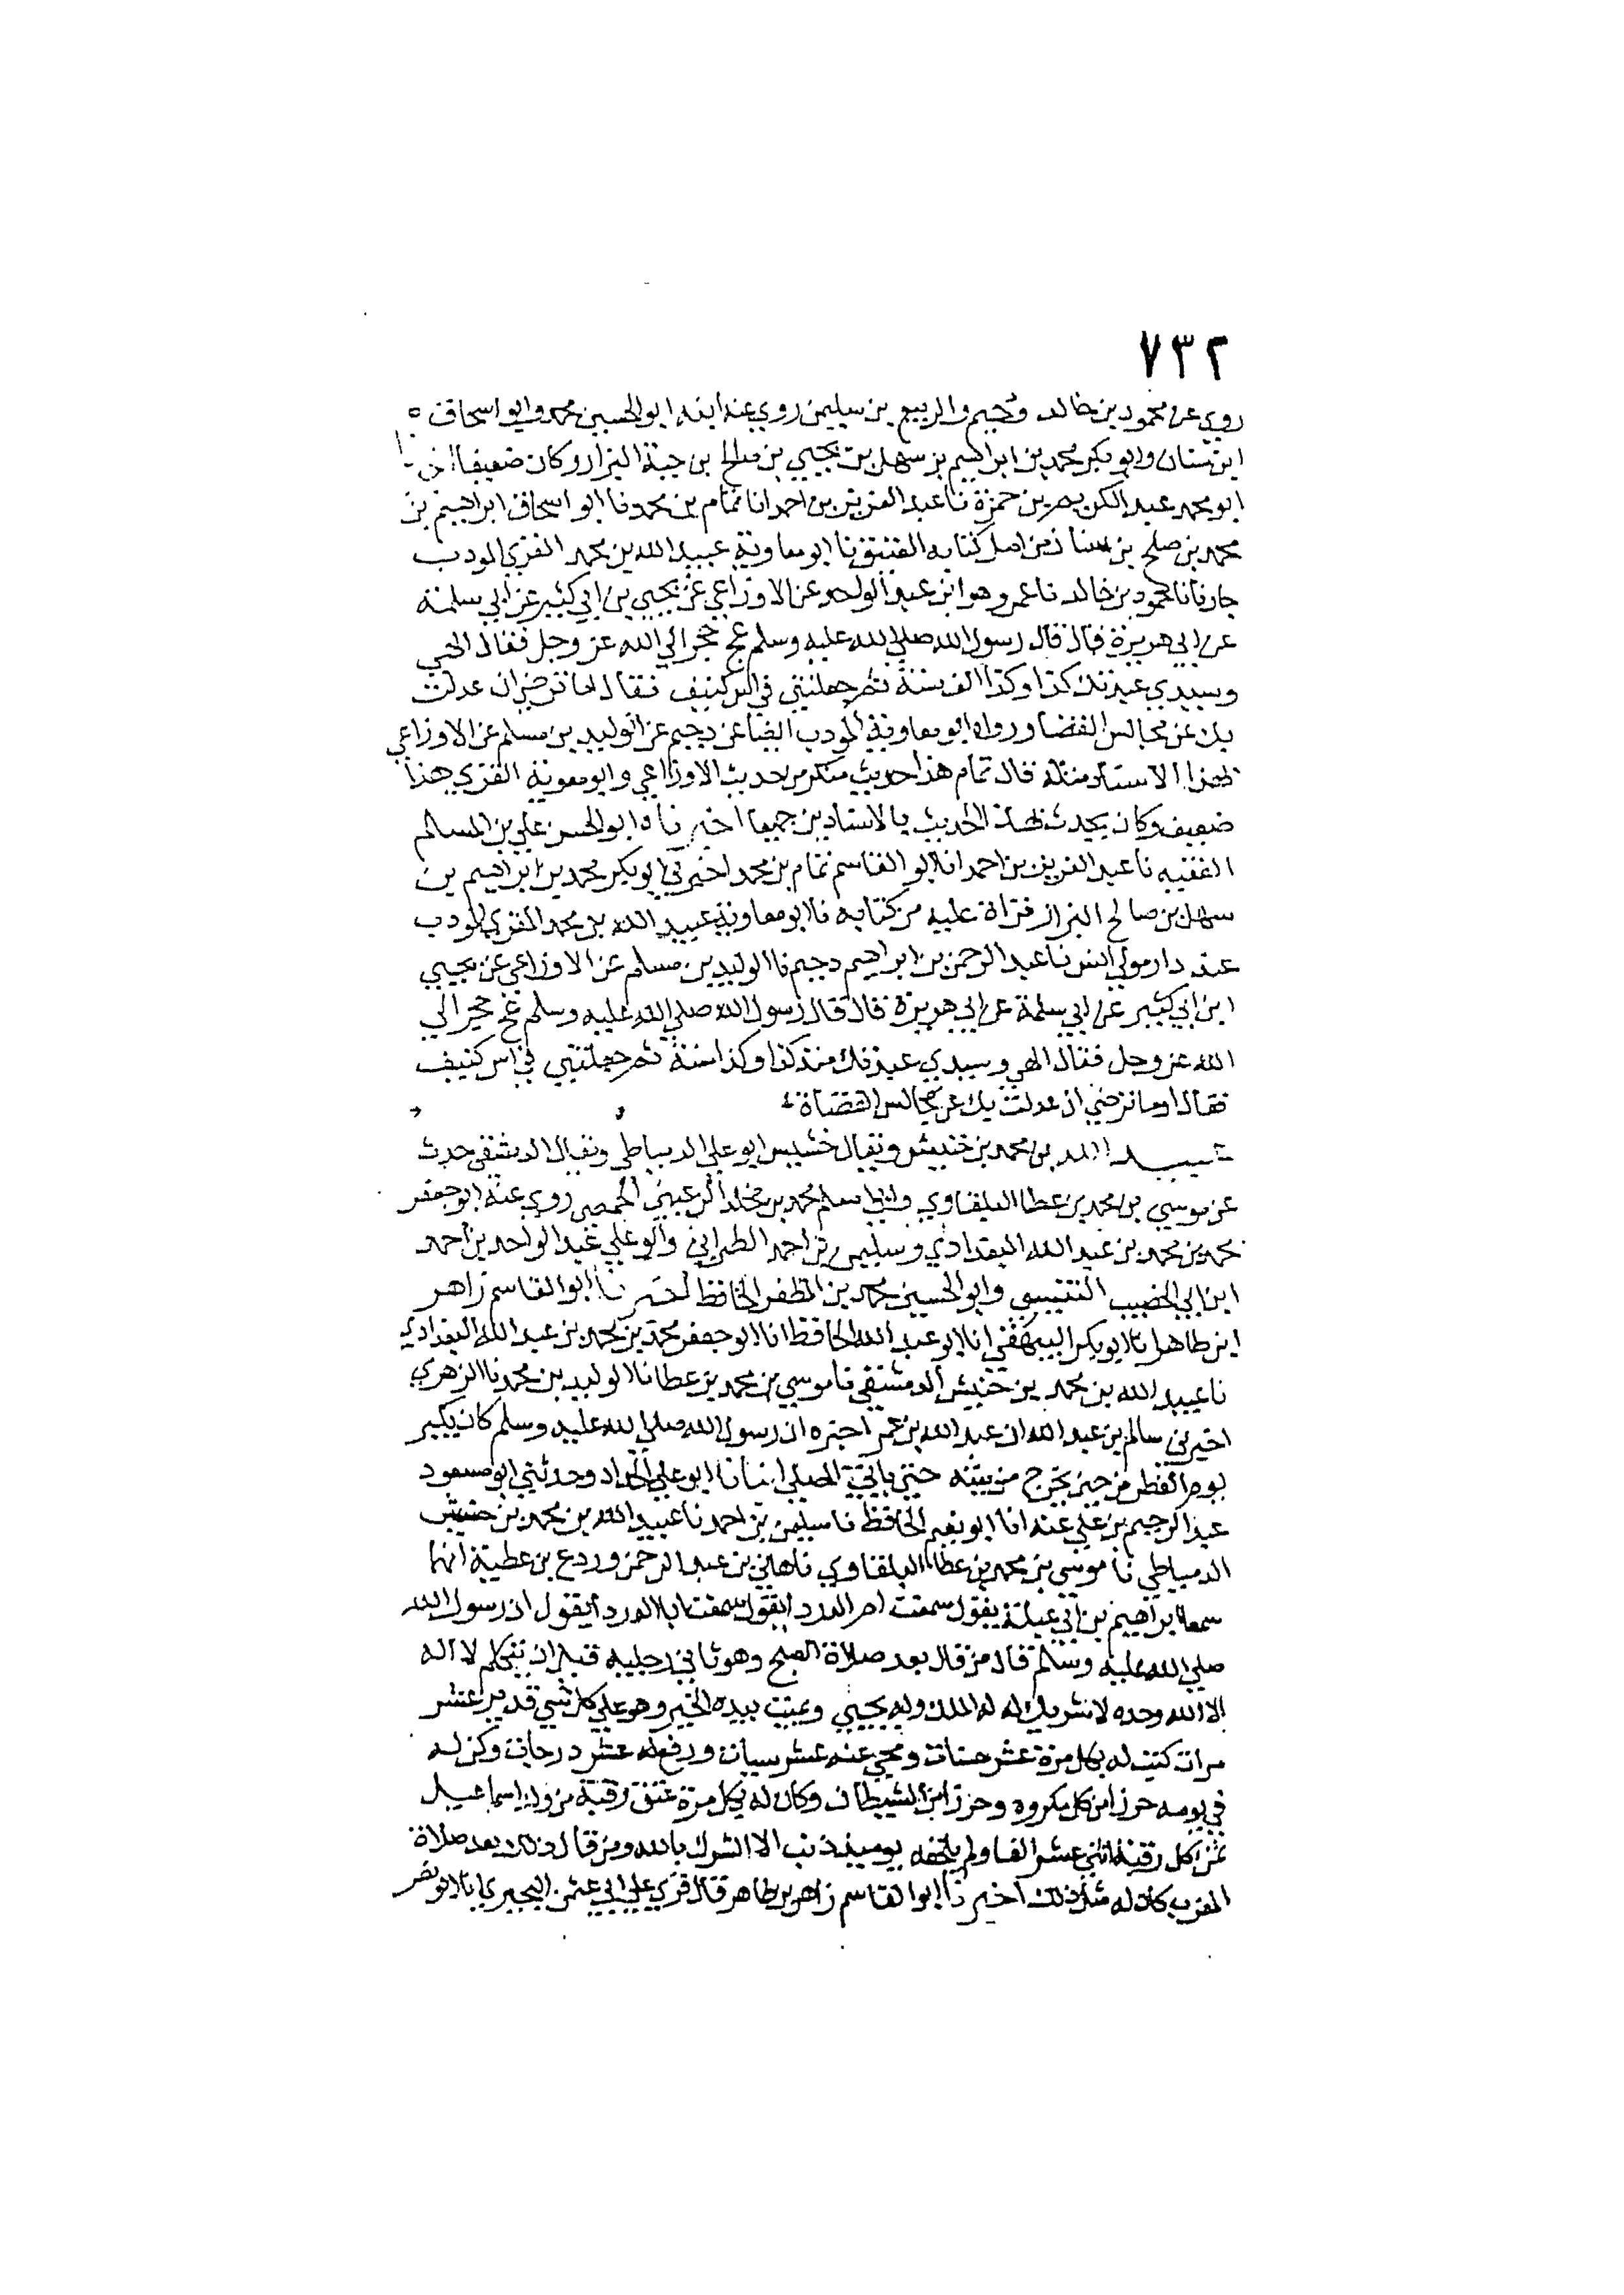 ٧٣٢
روي عن محمود بن خالد ودحيم والربيع بن سليمن روي عنه ابنه ابو الحسين محمد وابو اسحاق
ابن سنان وابو بكر محمد بن ابراهيم بن سهل بن يحيي بن صالح بن حية البزار وكان ضعيفا اخبرنا
ابو محمد عبد الكريم بن حمزة نا عبد العزيز بن احمد انا تمام بن محمد نا ابو اسحاق ابراهيم بن
محمد بن صلح بن سنان من اصل كتابه العتيق نا ابو معاوية عبيد الله بن محمد المقري المودب
جارنا نا محمود بن خالد نا عمر وهو ابن عبد الواحد عن الاوزاعي عن يحيي بن ابي كثير عن ابي سلمة
عن ابي هريرة قال قال رسول الله صلي الله عليه وسلم عج حجر الي الله عز وجل فقال الهي
وسيدي عبدتك كذا وكذا الف سنة ثم جعلتني في اس كنيف فقال اما ترضي ان عدلت
بك عن مجالس القضا ورواه ابو معاوية المودب ايضا عن دحيم عن الوليد بن مسلم عن الاوزاعي
بهذا الاسناد مثله قال تمام هذا حديث منكر من حديث الاوزاعي وابو معوية المقري هذا
ضعيف وكان يحدث بهذا الحديث بالاسنادين جميعا اخبرناه ابو الحسن علي بن المسلم
الفقيه نا عبد العزيز بن احمد انا ابو القاسم تمام بن محمد اخبرني ابو بكر محمد بن ابراهيم بن
سهل بن صالح البزاز قراة عليه من كتابه نا ابو معاوية عبيد الله بن محمد المقري المودب
عند دار مولي انس نا عبد الرحمن بن ابراهيم دحيم نا الوليد بن مسلم عن الاوزاعي عن يحيي
ابن ابي كثير عن ابي سلمة عن ابي هريرة قال قال رسول الله صلي الله عليه وسلم عج حجر الي
الله عز وجل فقال الهي وسيدي عبدتك منذ كذا وكذا سنة ثم جعلتني في اس كنيف
فقال اوما ترضي ان عدلت بك عن مجالس القضاة
عبيد الله بن محمد بن خنيش ويقال خشيش ابو علي الدمياطي ويقال الدمشقي حدث
عن موسي بن محمد بن عطا البلقاوي وابي اسلم محمد بن مخلد الرعيني الحمصي روي عنه ابو جعفر
محمد بن محمد بن عبد الله البغدادي وسليمن بن احمد الطبراني وابو علي عبد الواحد بن احمد
ابن ابي الخصيب التنيسي وابو الحسين محمد بن المظفر الحافظ اخبرنا ابو القاسم زاهر
ابن طاهر انا ابو بكر البيهقي انا ابو عبد الله الحافظ انا ابو جعفر محمد بن محمد بن عبد الله البغدادي
نا عبيد الله بن محمد بن خنيش الدمشقي نا موسي بن محمد بن عطا نا الوليد بن محمد نا الزهري
اخبرني سالم بن عبد الله ان عبد الله بن عمر اخبره ان رسول الله صلي الله عليه وسلم كان يكبر
يوم الفطر من حين يخرج من بيته حتي ياتي المصلي انبانا ابو علي الحداد وحدثني ابو مسعود
عبد الرحيم بن علي عنه انا ابو نعيم الحافظ نا سليمن بن احمد نا عبيد الله بن محمد بن خنيش
الدمياطي نا موسي بن محمد بن عطا البلقاوي نا هاني بن عبد الرحمن وردع بن عطية انهما
سمعا ابراهيم بن ابي عبلة يقول سمعت ام الدردا تقول سمعت ابا الدردا يقول ان رسول الله
صلي الله عليه وسلم قال من قال بعد صلاة الصبح وهو ثاني رجليه قبل ان يتكلم لا اله
الا الله وحده لا شريك له له الملك وله يحيي ويميت بيده الخير وهو علي كل شي قدير عشر
مرات كتبت له بكل مرة عشر حسنات ومحي عنه عشر سيات ورفع له عشر درجات وكن له
في يومه حرزا من كل مكروه وحرزا من الشيطان وكان له بكل مرة عتق رقبة من ولد اسماعيل
ثمن كل رقبة اثني عشر الفا ولم يلحقه يوميذ ذنب الا الشرك بالله ومن قال ذلك بعد صلاة
المغرب كان له مثل ذلك اخبرنا ابو القاسم زاهر بن طاهر قال قري علي ابي عثمن البحيري انا ابو نصر